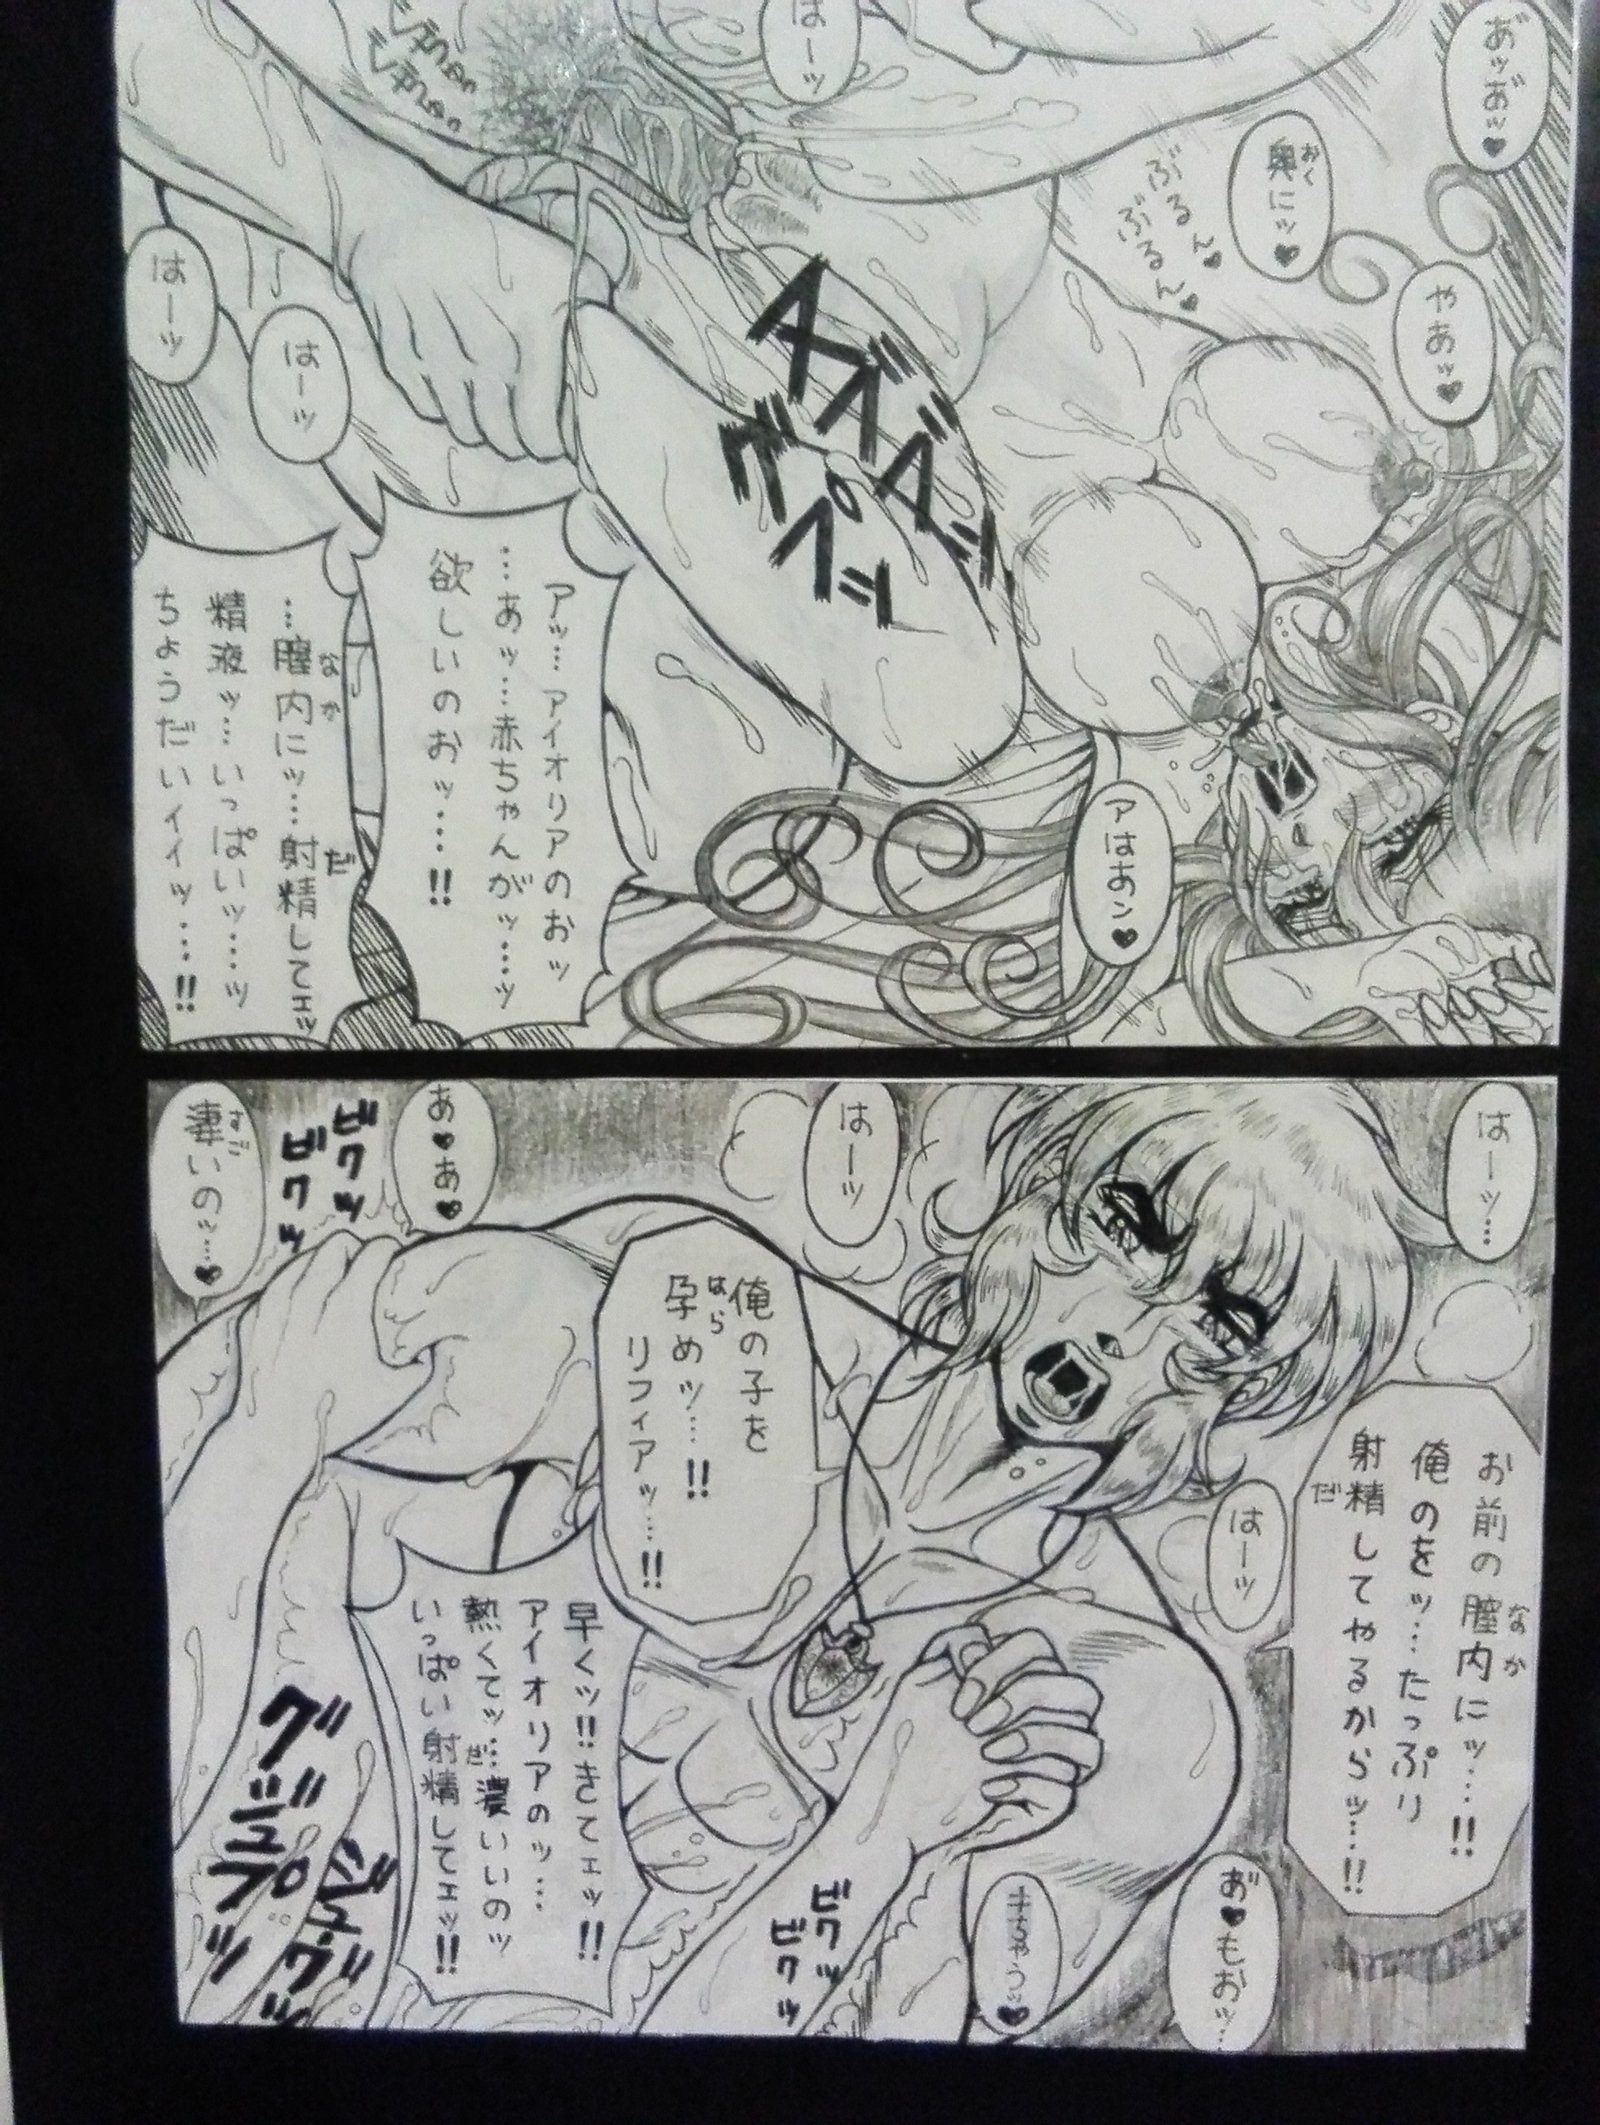 あ゛ッお゛ッ♥
はーッ
奥にッ♥
おく
やあッ♥
ぶるん♥
ぶるん♥
はーッ
はーッ
グパッ
アはあン♥
アッ…アイオリアのおッ
…あッ…赤ちゃんがッ…ッ
欲しいのおッ…!!
…膣内にッ…射精してェッ
なか
だ
精液ッ…いっぱいッ…ッ
ちょうだいィィッ…!!
はーッ…
はーッ
あ♥あ♥
凄いのッ…♥
すご
お前の膣内にッ…!!
なか
俺のをッ…たっぷり
射精してやるからッ…!!
だ
俺の子を
孕めッ…!!
はら
リフィアッ…!!
はーッ
早くッ!!きてェッ!!
アイオリアのッ…
熱くてッ…濃いいのッ
いっぱい射精してェッ!!
だ
お゛♥もおッ…
きちゃうッ♥
グジュプッ
ジュグッ